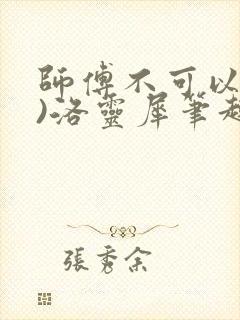 師傅不可以
)洛靈犀筆趣
張秀余